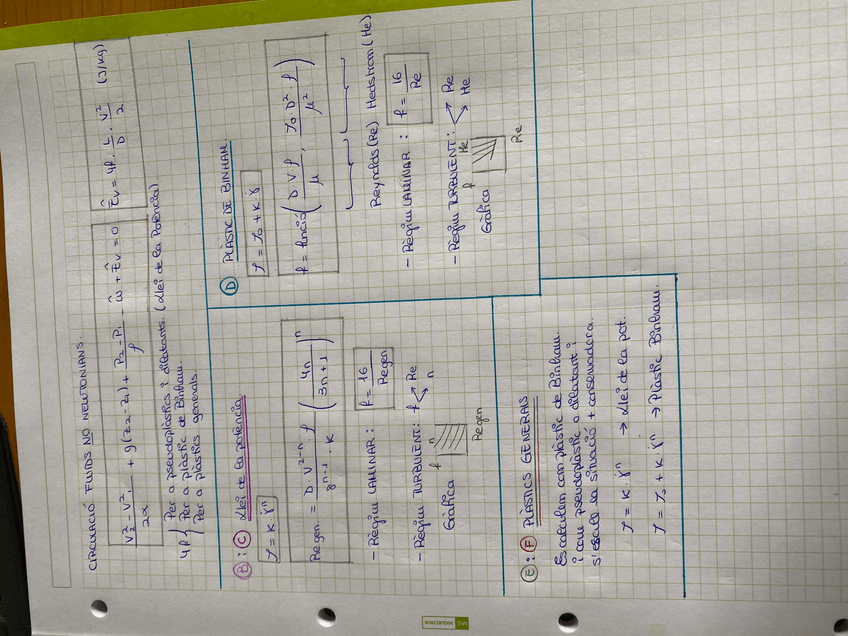 CIRCULACIÓ FLUIDS NO NEWTONIANS.
V₂² - V₁² / 2α + g(z₂ - z₁) + P₂ - P₁ / ρ - ŵ + Êv = 0
Êv = 4f · L/D · V²/2 (J/kg)
4f
Per a pseudoplàstics i dilatants. (Llei de la Potència)
Per a plàstic de Binham.
Per a plàstics generals
B i C Llei de la potència
τ = K · γ̇ⁿ
Regen. = D · V²⁻ⁿ · ρ / 8ⁿ⁻¹ · K (4n / 3n + 1)ⁿ
- Règim LAMINAR : f = 16 / Regen
- Règim TURBULENT : f Re n
Gràfica f n Regen
D PLÀSTIC DE BINHAM.
τ = τ₀ + K · γ̇
f = funció (D · V · ρ / μ , τ₀ · D² · ρ / μ²)
Reynolds (Re) Hedstrom (He).
- Règim LAMINAR : f = 16 / Re
- Règim TURBULENT : Re He
Gràfica f He Re
E i F PLÀSTICS GENERALS
Es calculen com plàstic de Binham.
i com pseudoplàstic o dilatant i
s'escull la situació + conservadora.
τ = K · γ̇ⁿ → Llei de la pot.
τ = τ₀ + K · γ̇ⁿ → Plàstic Binham.